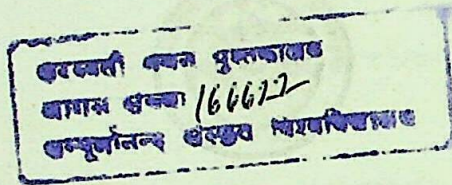 सरस्वती भवन पुस्तकालय
आगम संख्या 166622
सम्पूर्णानन्द संस्कृत विश्वविद्यालय